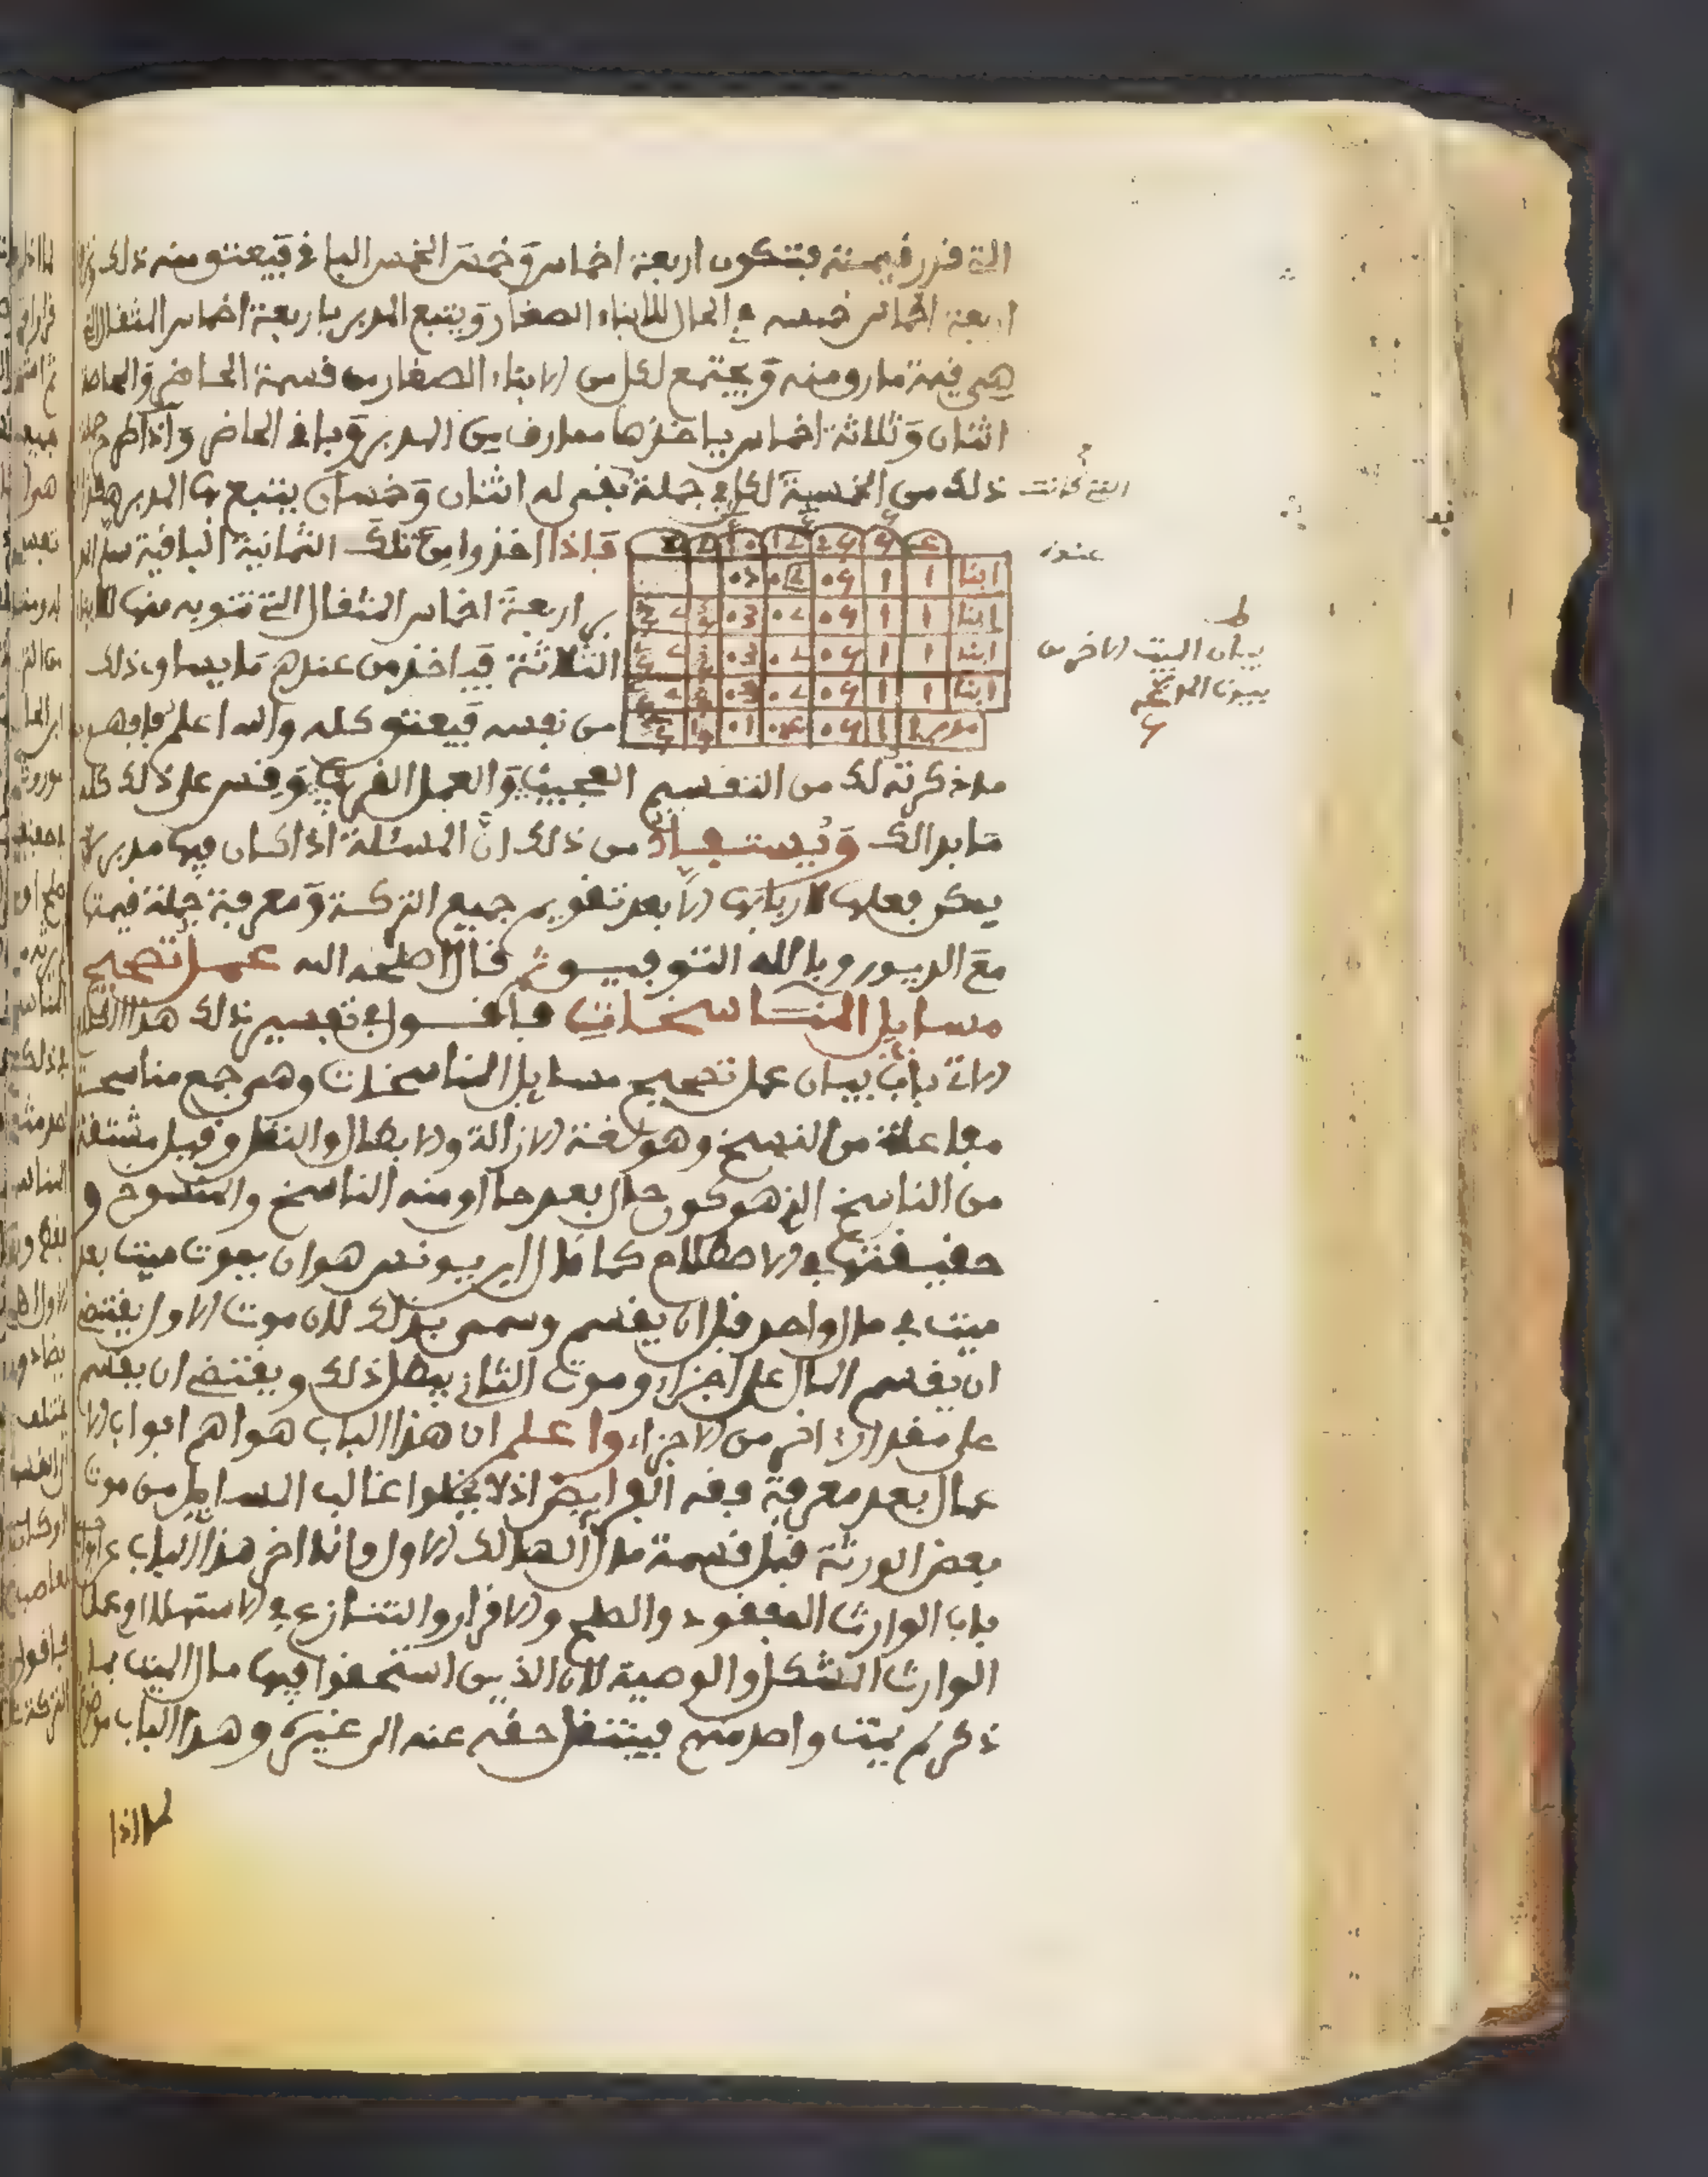 التى قدر قيمته فتكون اربعة اخماس وخمس الخمس الباقى فيعتق منه ذلك
اربعة اخماس خمسه في الحال للابناء الصغار ويتبع المدبر باربعة اخماس المثقال التى
هي قيمة مارق منه ويجتمع لكل من الابناء الصغار من قسمة الحاضر والحاصل
اثنان وثلاثة اخماس ياخذها معارف من المدبر وباقى الحاضر واذا طرح
ذلك من الخمسية لكل في جملة بقى له اثنان وخمسان يتبع بها المدبر هكذا
فاذا اخذوا من تلك الثمانية الباقية
بر اربعة اخماس المثقال التى تنوبه منها
الثلاثة فياخذ من عندهم ما يساوى ذلك
من نفسه فيعتق كله والله اعلم فافهم
ابنا 1 1
ابنا 1 1
ابنا 1 1
ابنا 1 1
ما ذكرته لك من التقسيم العجيب والعمل الغريب وقس على ذلك كله
ما بدالك ويستفاد من ذلك ان المسئلة اذا كان فيها مدبر لا
يمكن فعلها لاربابها الا بعد تقويم جميع التركة ومعرفة جملة قيمتها
مع الديون وبالله التوفيق ثم قال اصلحه الله عمل تصحيح
مسايل المناسخات فاقول في تفسير ذلك هذا الكلام
الاتى باب بيان عمل تصحيح مسايل المناسخات وهي جمع مناسخة
مفاعلة من النسخ وهو لغة الازالة والابطال والنقل وقيل مشتقة
من الناسخ الذى هو كون حال بعد حال ومنه الناسخ والمنسوخ و
حقيقتها في الاصطلاح كما قال ابن يونس هو ان يموت ميت بعد
ميت في مال واحد قبل ان يقسم وسمى بذلك لان موت الاول يقتضى
ان يقسم المال على اجزاء وموت الثانى يبطل ذلك ويقتضى ان يقسم
على مقدار اخر من الاجزاء واعلم ان هذا الباب هو اهم ابواب الا
عمال بعد معرفة فقه الفرايض اذ لا يخلوا غالب المسايل من موت
بعض الورثة قبل قسمة مال الهالك الاول وانما اخر هذا الباب عن
باب الوارث المفقود والصلح والاقرار والتنازع في الاستهلال وعمل
الوارث المشكل والوصية لان الذين استحقوا فيها مال الميت بما
ذكر لم يمت واحد منهم فينتقل حقه عنه الى غيره وهذا الباب
لما اذا
التى كانت
عنده
ط
بيان البيت الاخر من
بيوت